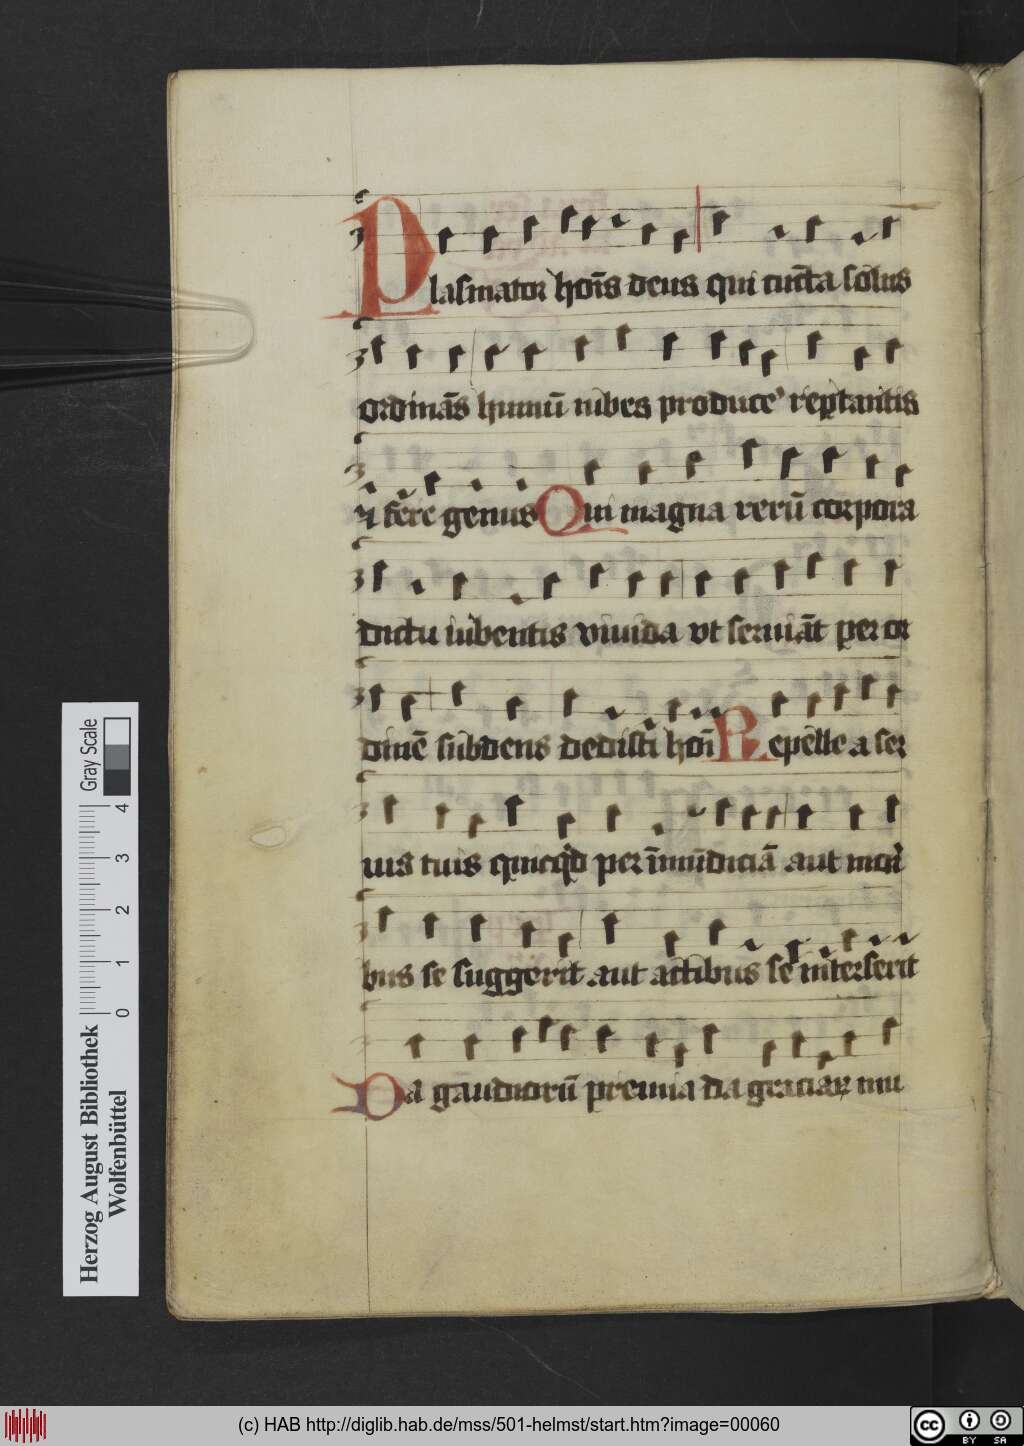 Plasmator hoı̄s deus qui cūcta solus
ordinās humū iubes produce' reptantis
⁊ fere genus Qui magna rerū corpora
dictu iubentis viuida vt seruiāt per or
dinē subdens dedisti hoı̄ Repelle a ser
uis tuis quicqd per īmūdiciā aut mori
bus se suggerit aut actibus se interserit
Da gaudiorū premia da graciarꝫ mu
Gray Scale
4
3
2
1
0
Herzog August Bibliothek
Wolfenbüttel
(c) HAB http://diglib.hab.de/mss/501-helmst/start.htm?image=00060
cc
BY SA